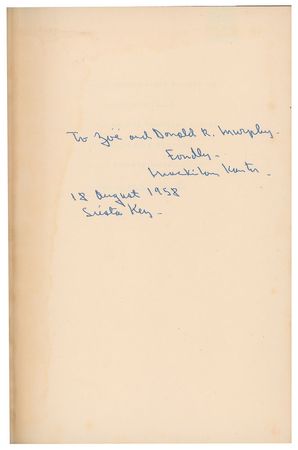 To Zoë and Donald R. Murphy -
Fondly -
MacKinlay Kantor -
18 August 1958
Siesta Key -